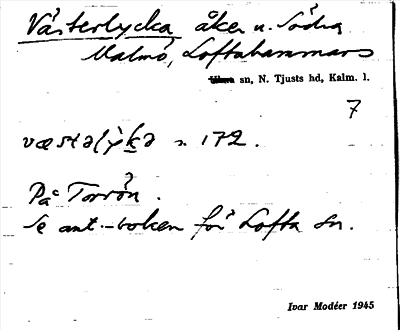 Västerlycka åker u. Södra
Malmö, Loftahammars
sn, N. Tjusts hd, Kalm. l.
7
væstəl̀yk̲ə n. 172.
På Torrön.
Se ant.-boken för Lofta sn.
Ivar Modéer 1945